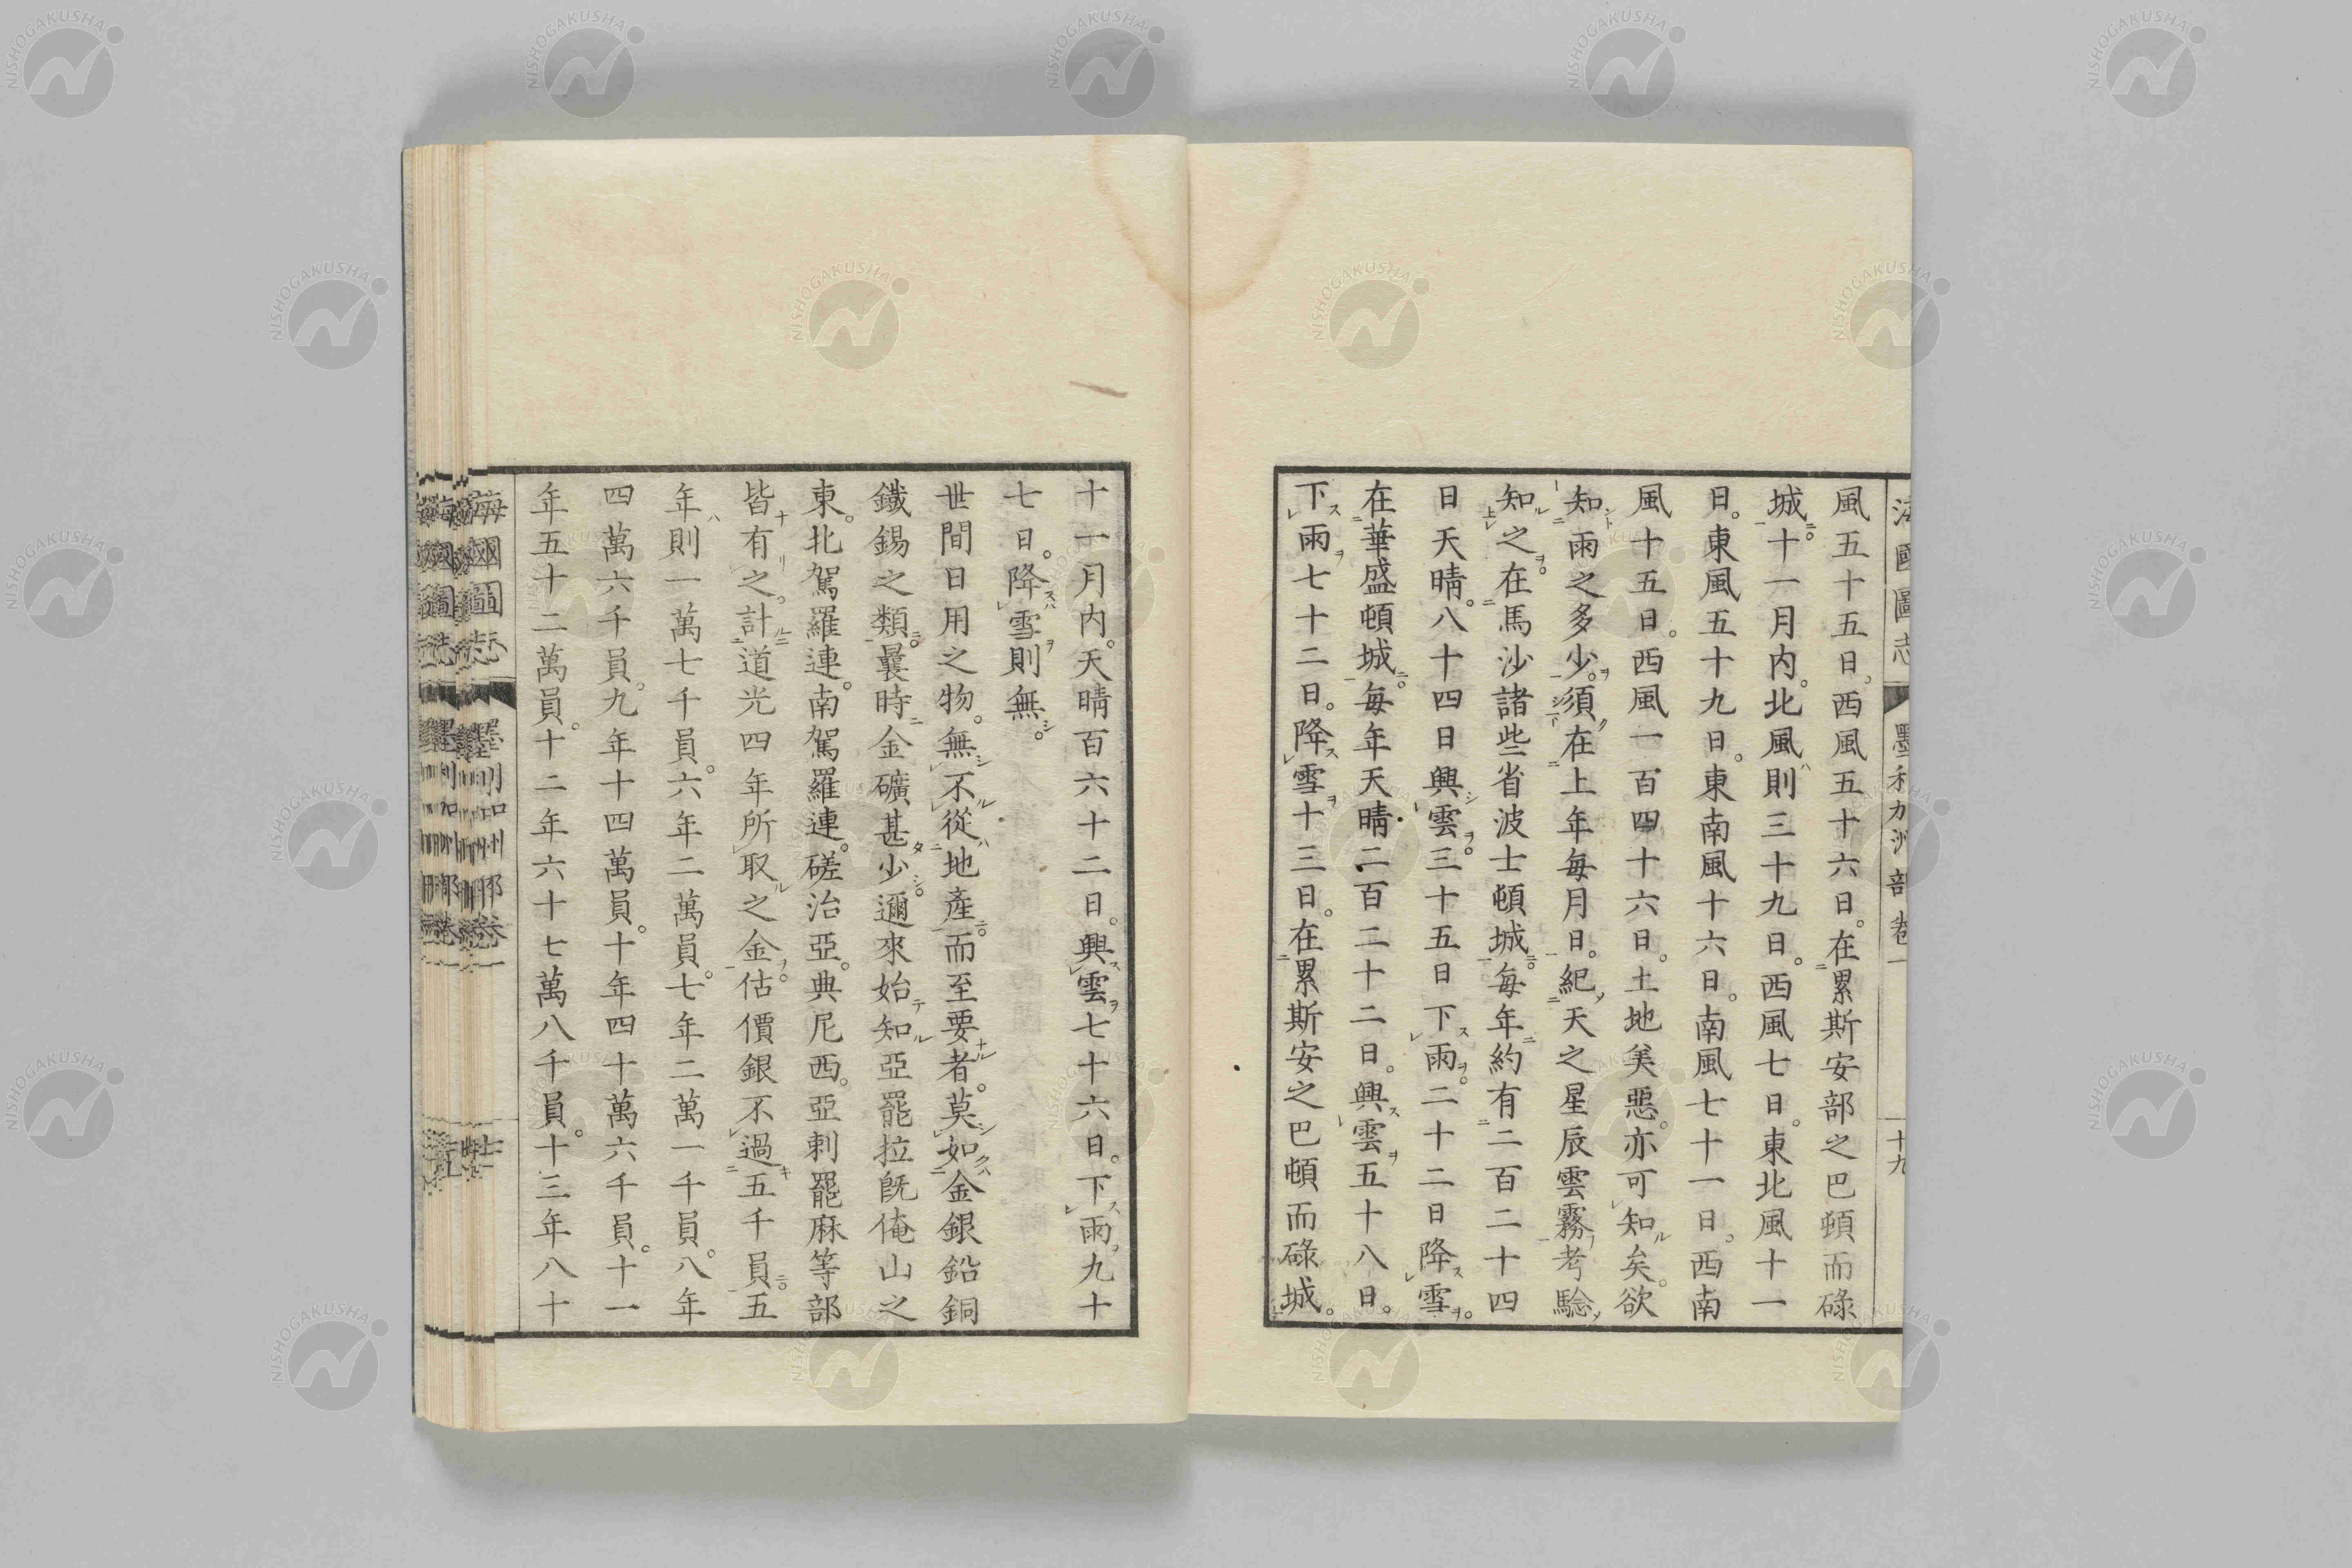 海國圖志 墨利加洲部卷一 十九
風五十五日。西風五十六日。在累斯安部之巴頓而碌
城。十一月内。北風則三十九日。西風七日。東北風十一
日。東風五十九日。東南風十六日。南風七十一日。西南
風十五日。西風一百四十六日。土地美惡。亦可知矣。欲
知雨之多少。須在上年每月日。紀天之星辰雲霧考騐
知之。在馬沙諸些省波士頓城。每年約有二百二十四
日天晴。八十四日興雲。三十五日下雨。二十二日降雪。
在華盛頓城。每年天晴二百二十二日。興雲五十八日。
下雨七十二日。降雪十三日。在累斯安之巴頓而碌城。
十一月内。天晴百六十二日。興雲七十六日。下雨九十
七日。降雪則無。
世間日用之物。無不從地產。而至要者。莫如金銀鉛銅
鐵錫之類。曩時金礦甚少。邇來始知亞罷拉旣俺山之
東。北駕羅連。南駕羅連。磋治亞。典尼西。亞剌罷麻等部
皆有之。計道光四年所取之金。估價銀不過五千員。五
年則一萬七千員。六年二萬員。七年二萬一千員。八年
四萬六千員。九年十四萬員。十年四十萬六千員。十一
年五十二萬員。十二年六十七萬八千員。十三年八十
海國圖志 墨利加州部卷一